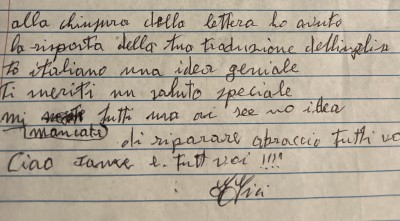 alla chiusura della lettera ho avuto
la risposta della tua traduzione dell'inglis
to italiano una idea geniale
Ti meriti un saluto speciale
mi tutti ma
mancate
di riparare abraccio tutti vo
Ciao e. tutt voi !!!!